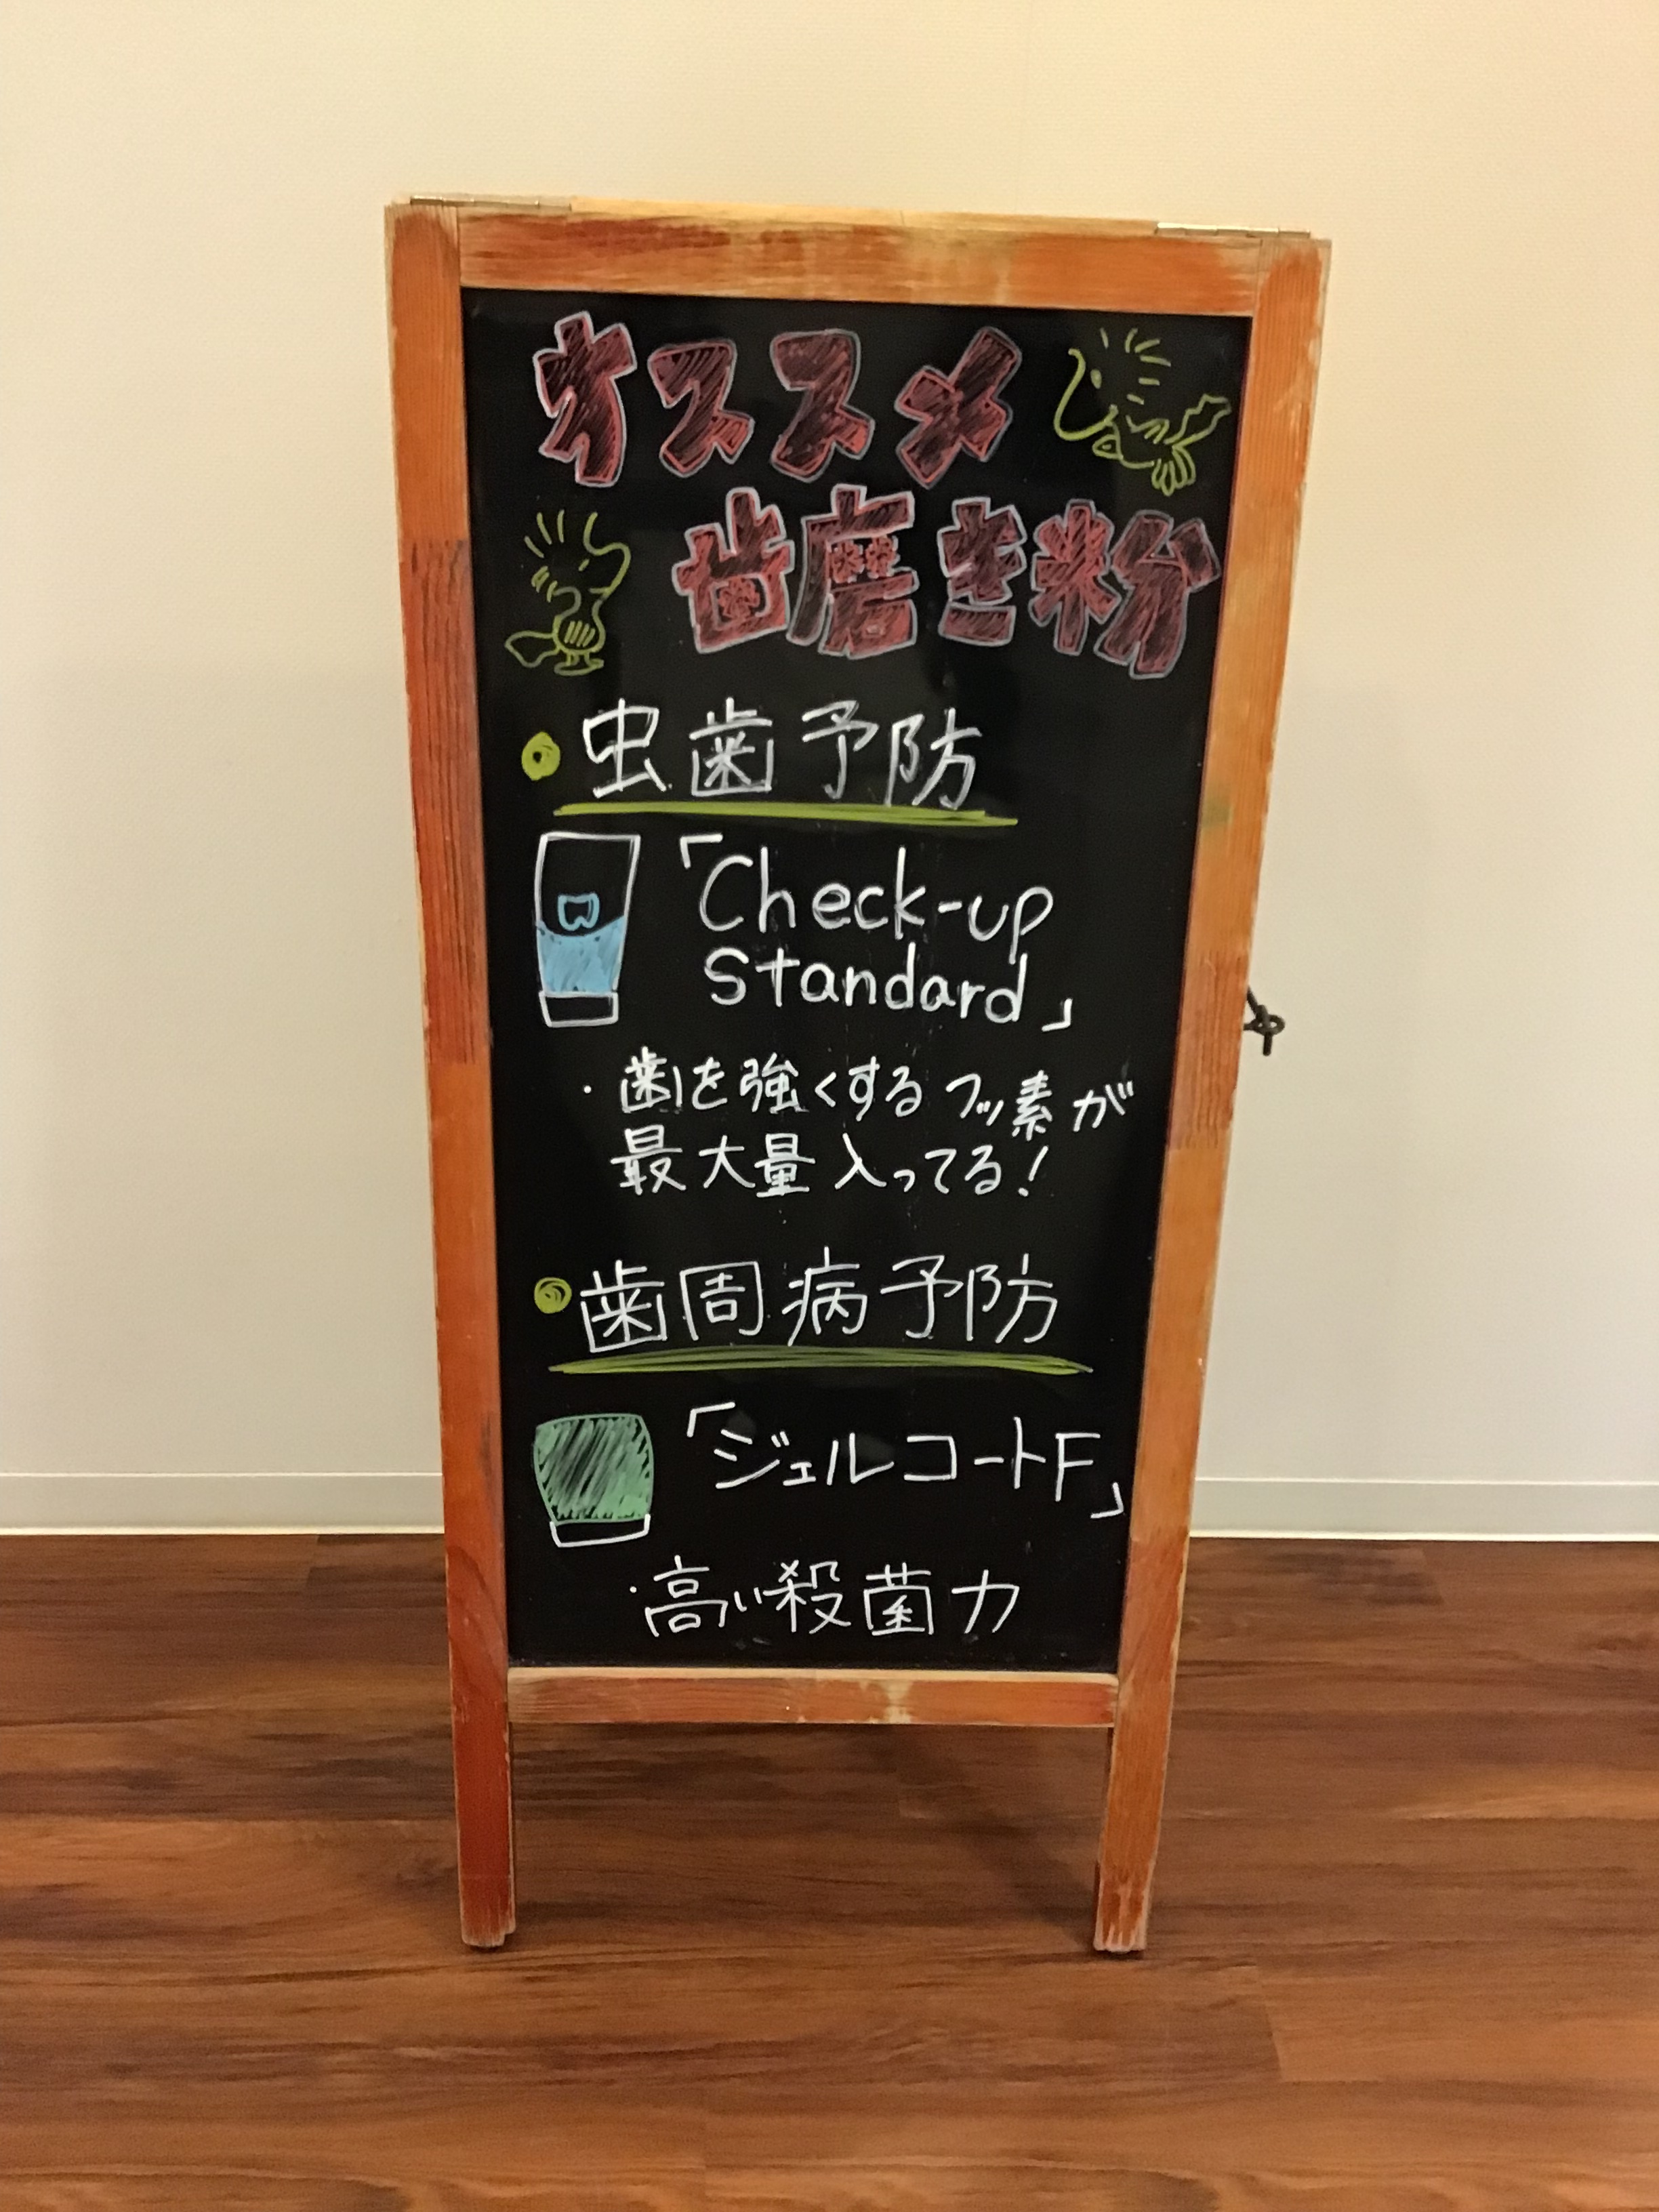 オススメ
歯磨き粉
虫歯予防
「Check-up
Standard」
・歯を強くするフッ素が
最大量入ってる！
歯周病予防
「ジェルコートF」
・高い殺菌力